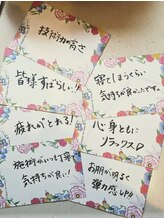 技術力の高さ
皆様すばらしい!!
寝てしまうくらい
気持ちが良かったです。
疲れがとれる!
心身ともに
リラックス♡
施術がいつも丁寧で
気持ちが良い!
お肌が明るく
弾力感UP!!